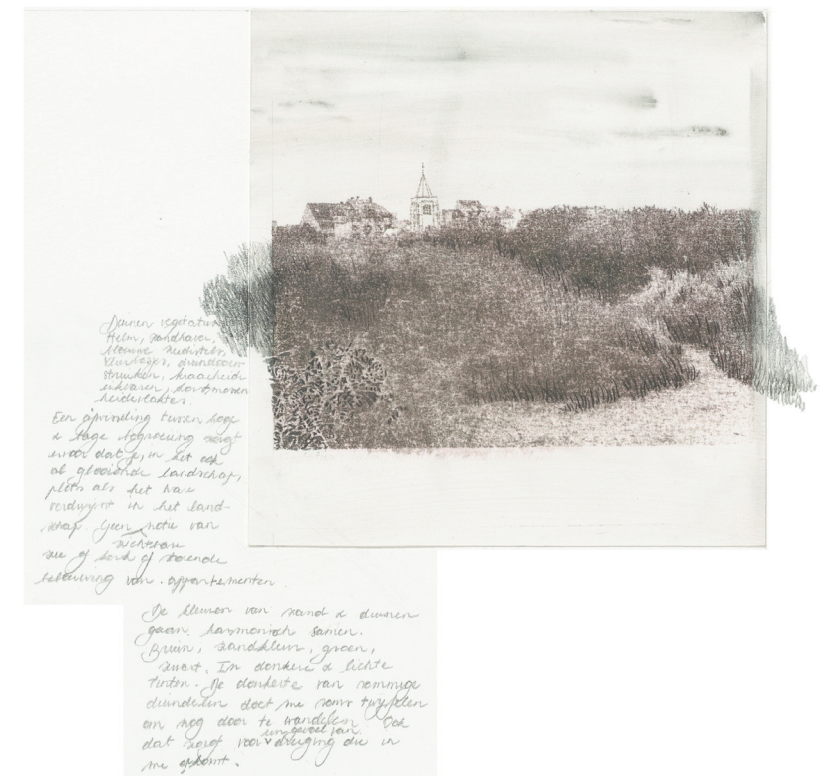 Duinen vegetatie
Helm, zandhaver,
blauwe zeedistels,
duindoorn
struiken, kraaiheide
eikvaren, korstmossen
heideslakten.
Een afwisseling tussen hoge
& lage begroeiing zorgt
ervoor dat je, in het ook
al glooiende landschap,
plots als het ware
verdwijnt in het land-
schap. Geen notie van
zichtbare
zee of kerk of storende
bebouwing van appartementen.
De kleuren van zand & duinen
gaan harmonisch samen.
Bruin, zandkleur, groen,
zwart. In donkere & lichte
tinten. De donkerte van sommige
duindelen doet me soms twijfelen
om nog door te wandelen. Ook
een gevoel van
dat zorgt voor dreiging die in
me opkomt.